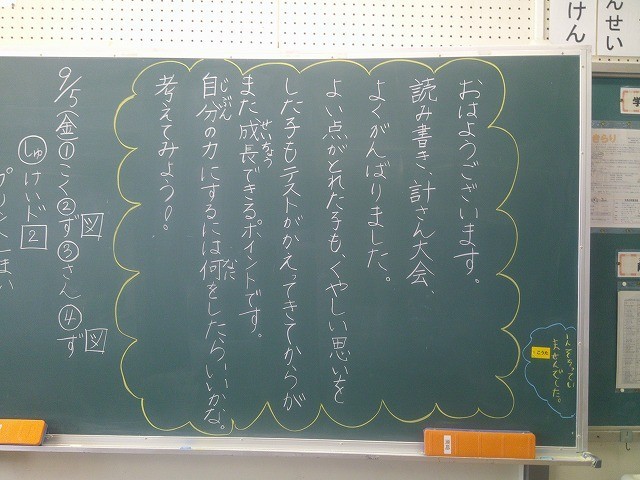 んせい
けん
おはようございます。
読み書き、計さん大会、
よくがんばりました。
よい点がとれた子も、くやしい思いを
した子もテストがかえってきてからが
また成長できるポイントです。
せいちょう
自分の力にするには何をしたらいいかな。
じぶん
なに
考えてみよう!
9/5(金)①こく②ず図③さん④ず図
しゅけいド2
プリント
きらり
ませんでした。